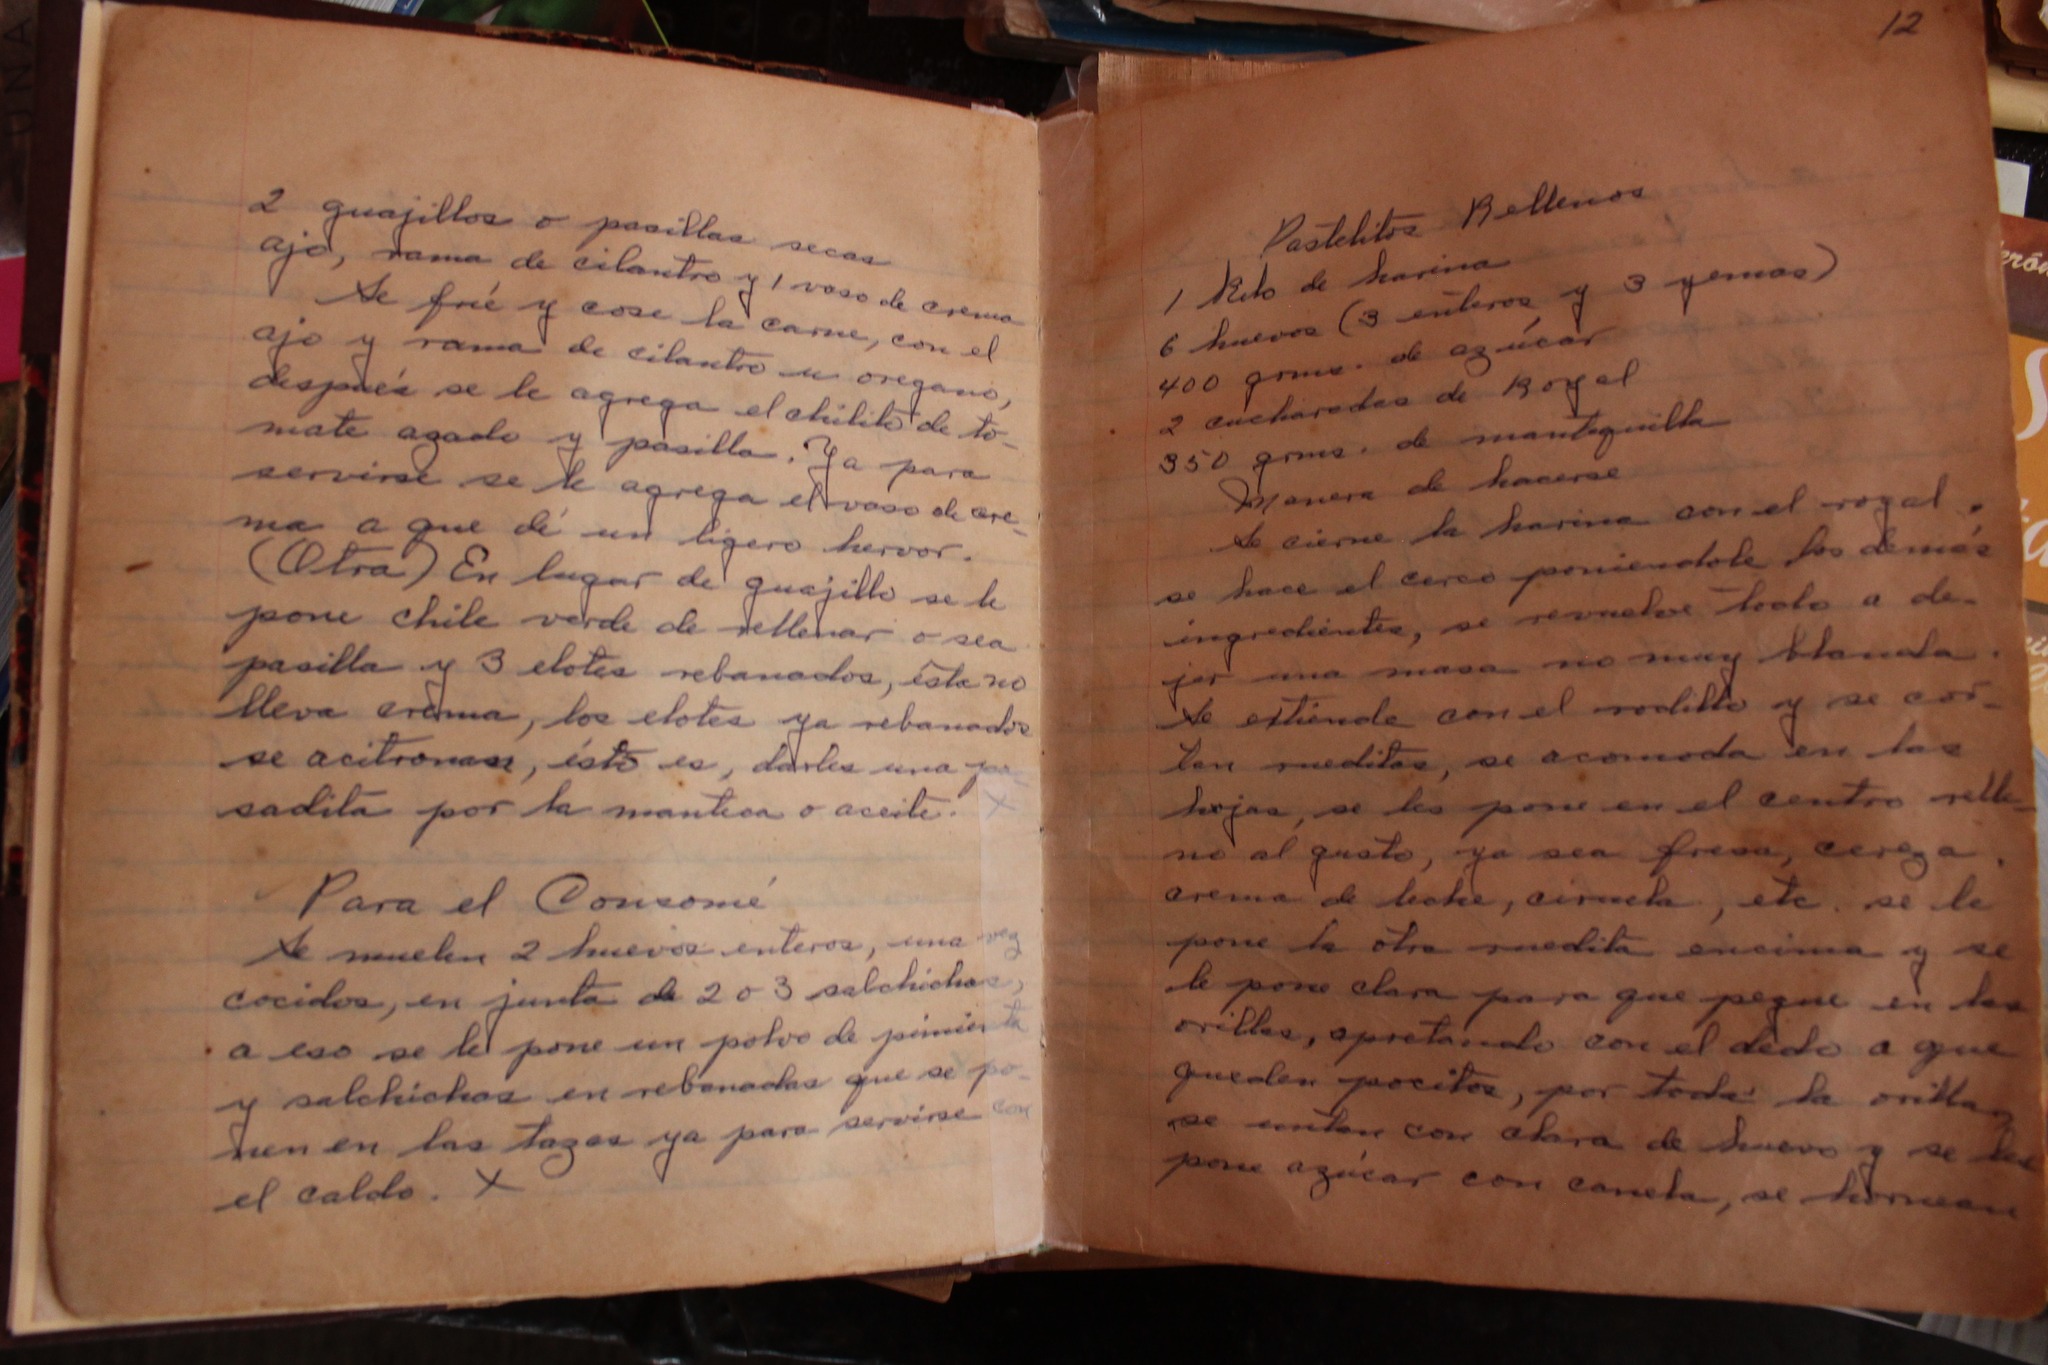 2 guajillos o pasillas secas
ajo, rama de cilantro y 1 vaso de crema
Se frié y cose la carne, con el
ajo y rama de cilantro u oregano,
después se le agrega el chilito de to-
mate asado y pasilla. Ya para
servirse se le agrega el vaso de cre-
ma a que dé un ligero hervor.
(Otra) En lugar de guajillo se le
pone chile verde de rellenar o sea
pasilla y 3 elotes rebanados, ésta no
lleva crema, los elotes ya rebanados
se acitronan, ésto es, darles una pa-
sadita por la manteca o aceite. X
Para el Consomé
Se muelen 2 huevos enteros, una vez
cocidos, en junta de 2 o 3 salchichas,
a eso se le pone un polvo de pimienta
y salchichas en rebanadas que se po-
nen en las tazas ya para servirse con
el caldo. X
12
Pastelitos Rellenos
1 Kilo de harina
6 huevos (3 enteros y 3 yemas)
400 grms. de azúcar
2 cucharadas de Royal
350 grms. de mantequilla
Manera de hacerse
Se cierne la harina con el royal,
se hace el cerco poniendole los demás
ingredientes, se revuelve todo a de-
jar una masa no muy blanda.
Se estiende con el rodillo y se cor-
tan rueditas, se acomoda en las
hojas, se les pone en el centro relle-
no al gusto, ya sea fresa, cereza,
crema de leche, ciruela, etc. se le
pone la otra ruedita encima y se
le pone clara para que pegue en las
orillas, apretando con el dedo a que
queden pocitos, por toda la orilla,
se untan con clara de huevo y se les
pone azúcar con canela, se hornean